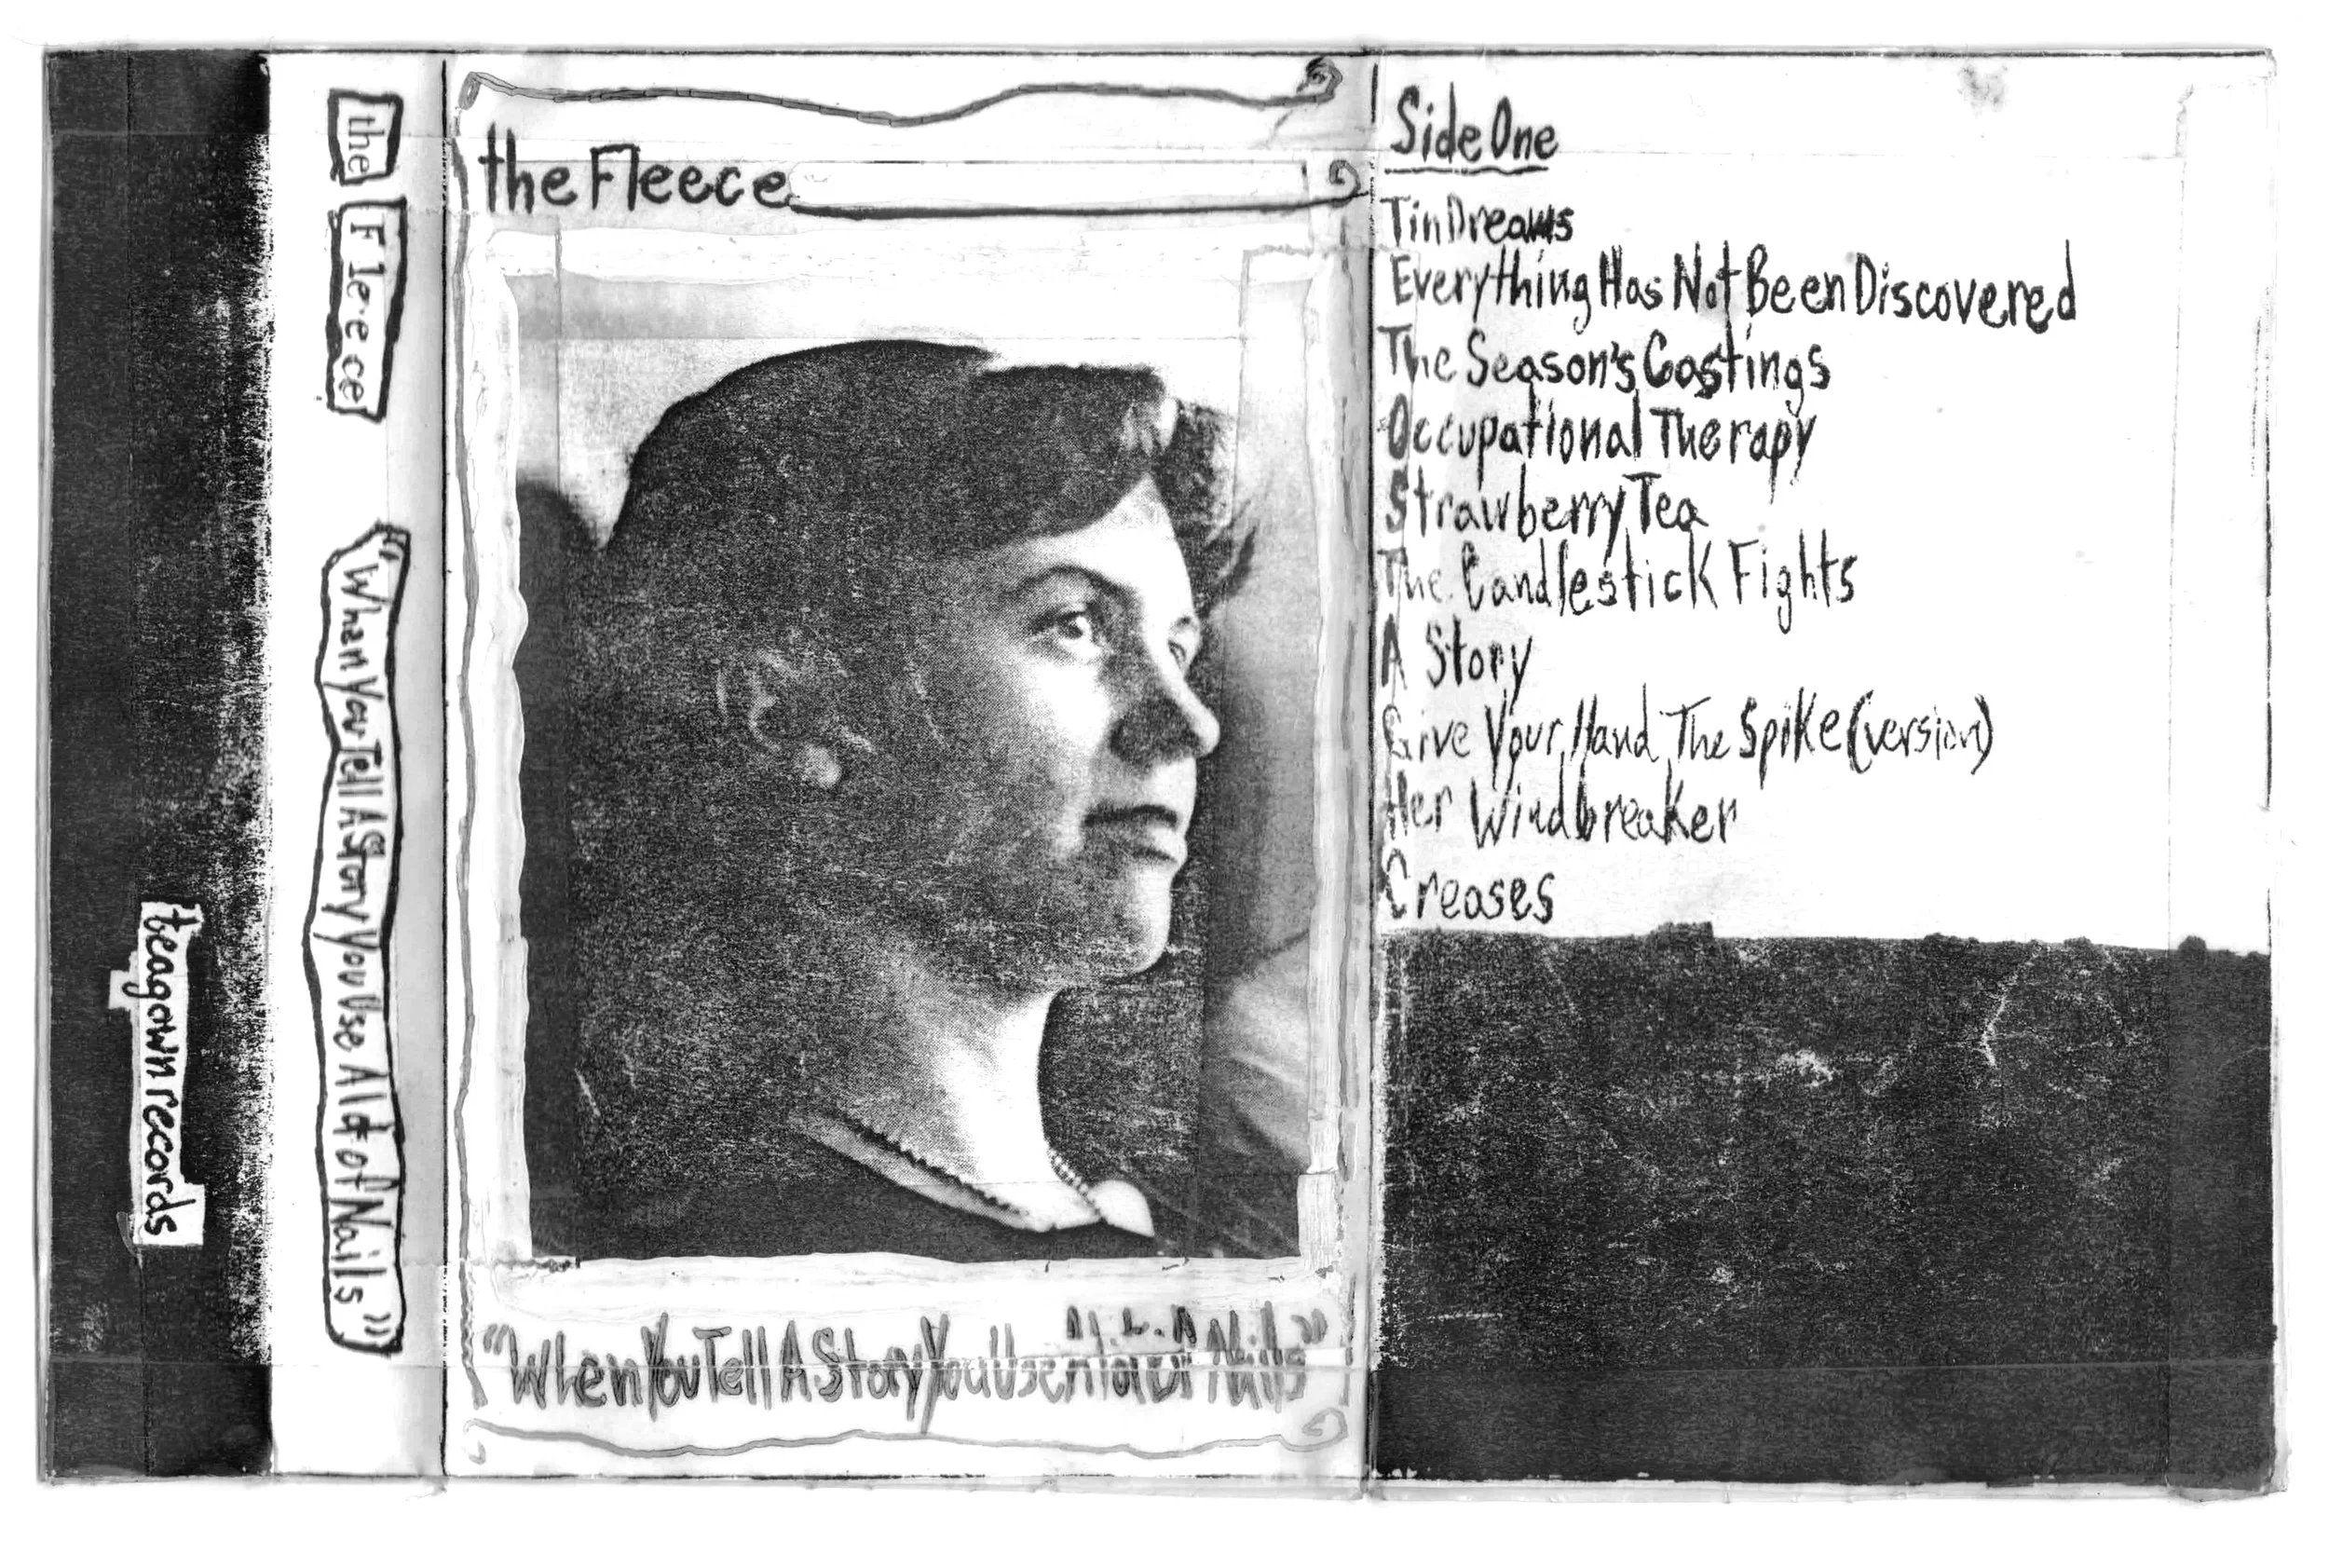 teagown records
the Fleece
"When You Tell A Story You Use A lot of Nails"
the Fleece
"When You Tell A Story You Use A lot of Nails"
Side One
Tin Dreams
Everything Has Not Been Discovered
The Season's Castings
Occupational Therapy
Strawberry Tea
The Candlestick Fights
A Story
Give Your Hand The Spike (version)
Her Windbreaker
Creases